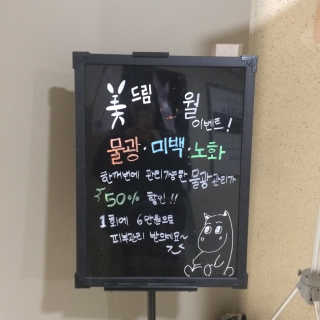 美드림 월
이벤트!
물광·미백·노화
한개번에 관리가능한 물광관리가
50% 할인!!
1회에 6만원으로
피부관리 받으세요~